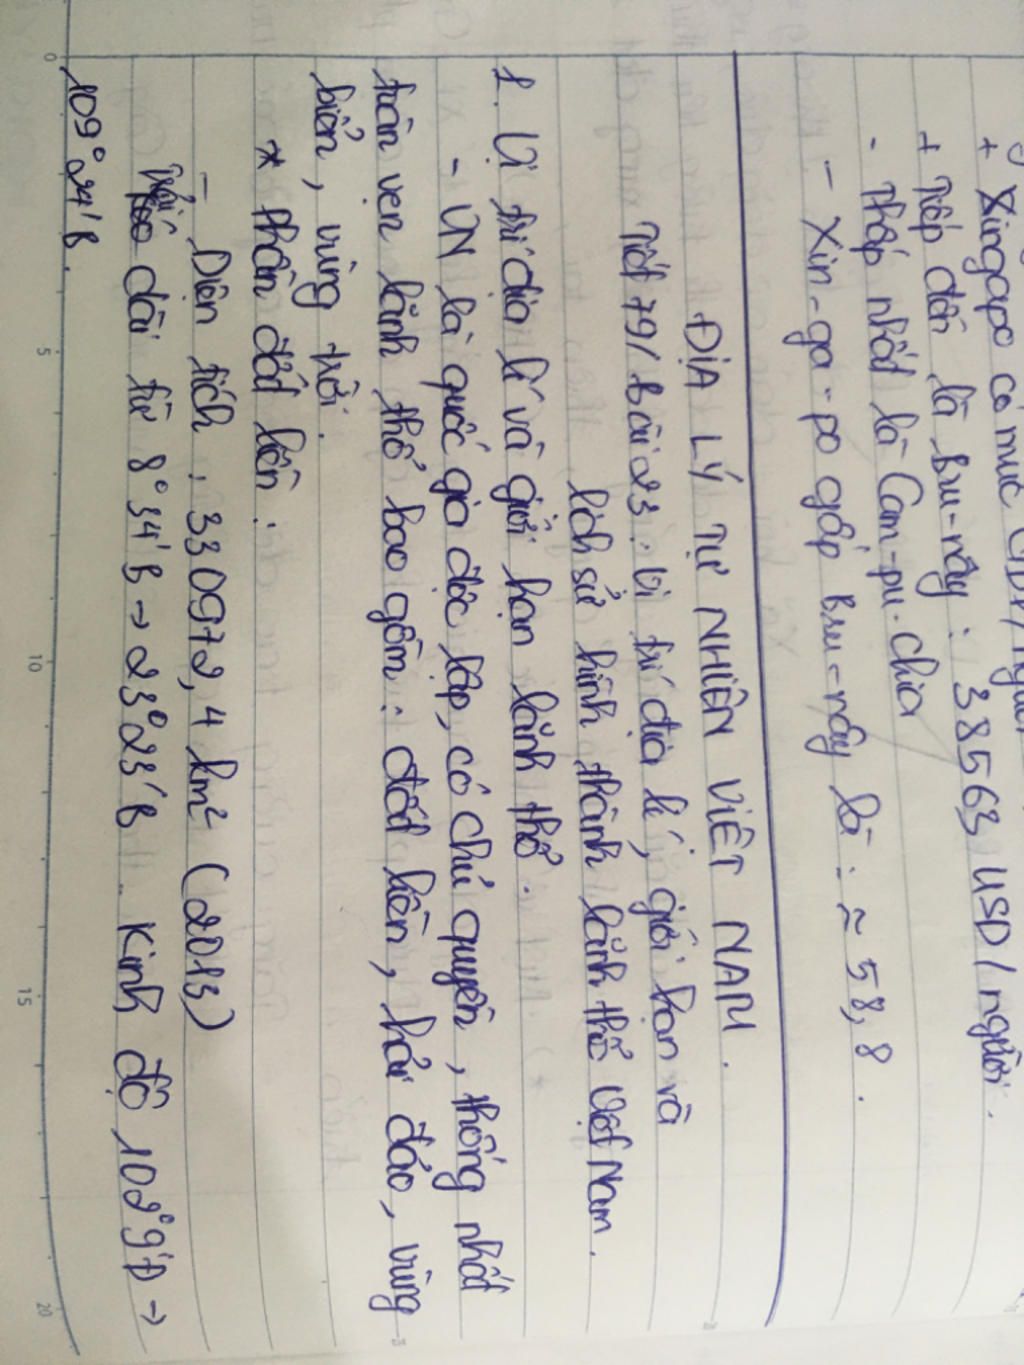 + Xingapo có mức GDP/người
+ Tiếp đến là Bru-nây : 38563 USD/người.
- Thấp nhất là Cam-pu-chia
- Xin-ga-po gấp Bru-nây là : ≈ 58,8 .
ĐỊA LÝ TỰ NHIÊN VIỆT NAM .
Tiết 79/ Bài 23 : Vị trí địa lí, giới hạn và
lịch sử hình thành lãnh thổ Việt Nam .
1. Vị trí địa lí và giới hạn lãnh thổ .
- VN là quốc gia độc lập, có chủ quyền, thống nhất
toàn vẹn lãnh thổ bao gồm : đất liền, hải đảo, vùng
biển, vùng trời .
* Phần đất liền :
- Diện tích : 330972,4 km² (2013)
dài từ 8°34'B → 23°23'B . Kinh độ 102°9'Đ →
109°24'B .